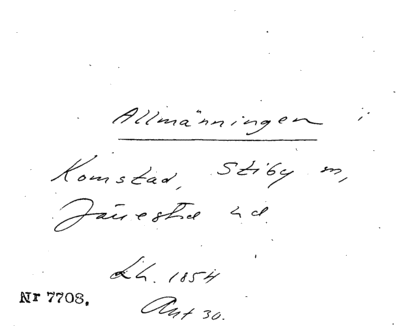 Allmänningen i
Komstad, Stiby m,
Järrestad hd
Lh. 1854
Akt 30.
Nr 7708.